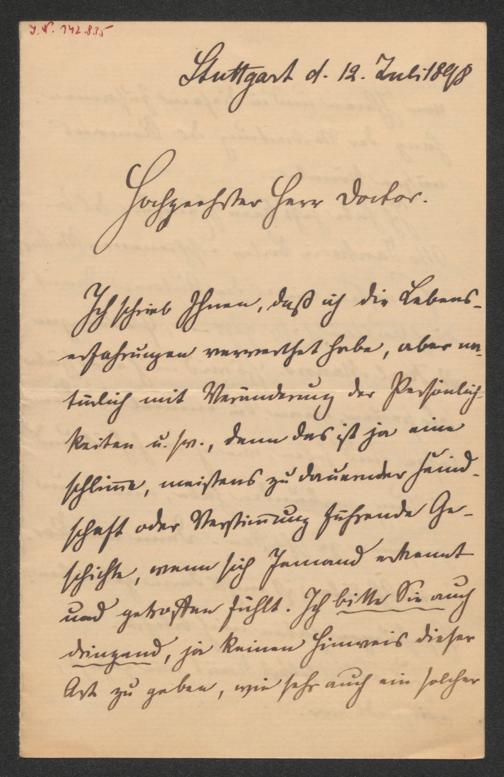 J.N. 142.835
Stuttgart d. 12. Juli 1898
Hochgeehrter Herr Doctor.
Ich schrieb Ihnen, daß ich die Lebens-
erfahrungen verwerthet habe, aber na-
türlich mit Veränderung der Persönlich-
keiten u. sw., denn das ist ja eine
schlim̅e, meistens zu dauernder Feind-
schaft oder Verstim̅ung führende Ge-
schichte, wenn sich Jemand erkennt
und getroffen fühlt. Ich bitte Sie auch
dringend, ja keinen Hinweis dieser
Art zu geben, wie sehr auch ein solcher